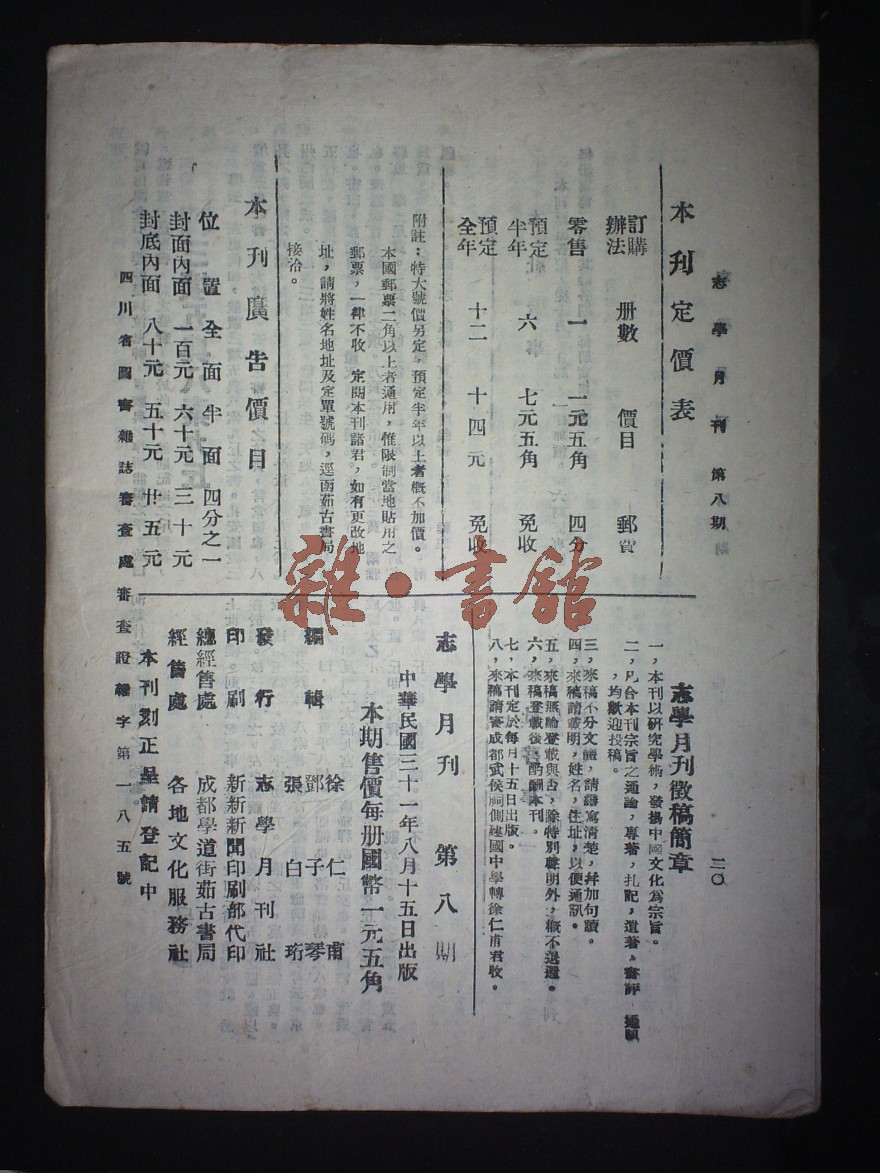 志學月刊 第八期
二〇
本刊定價表
訂購辦法 册數 價目 郵費
零售 一 一元五角 四分
預定半年 六 七元五角 免收
預定全年 十二 十四元 免收
附註：特大號價另定，預定半年以上者概不加價。
本國郵票二角以上者通用，惟限制當地貼用之
郵票，一律不收 定閱本刊諸君，如有更改地
址，請將姓名地址及定單號碼，逕函茹古書局
接洽。
本刊廣告價目
位置 全面 半面 四分之一
封面內面 一百元 六十元 三十元
封底內面 八十元 五十元 廿五元
四川省圖書雜誌審查處審查證 字第一八五號
志學月刊徵稿簡章
一，本刊以研究學術，發揚中國文化為宗旨。
二，凡合本刊宗旨之通論，專著，札記，遺著，書評，通訊
，均歡迎投稿。
三，來稿不分文體，請繕寫清楚，幷加句讀。
四，來稿請載明，姓名，住址，以便通訊。
五，來稿無論登載與否，除特別聲明外，概不退還。
六，來稿登載後，酌酬本刊。
七，本刊定於每月十五日出版。
八，來稿請寄成都武侯祠側建國中學轉徐仁甫君收。
志學月刊 第八期
中華民國三十一年八月十五日出版
本期售價每册國幣一元五角
編輯 徐仁甫
鄧子琴
張白珩
發行 志學月刊社
印刷 新新新聞印刷部代印
總經售處 成都學道街茹古書局
經售處 各地文化服務社
本刊刻正呈請登記中
雜·書館